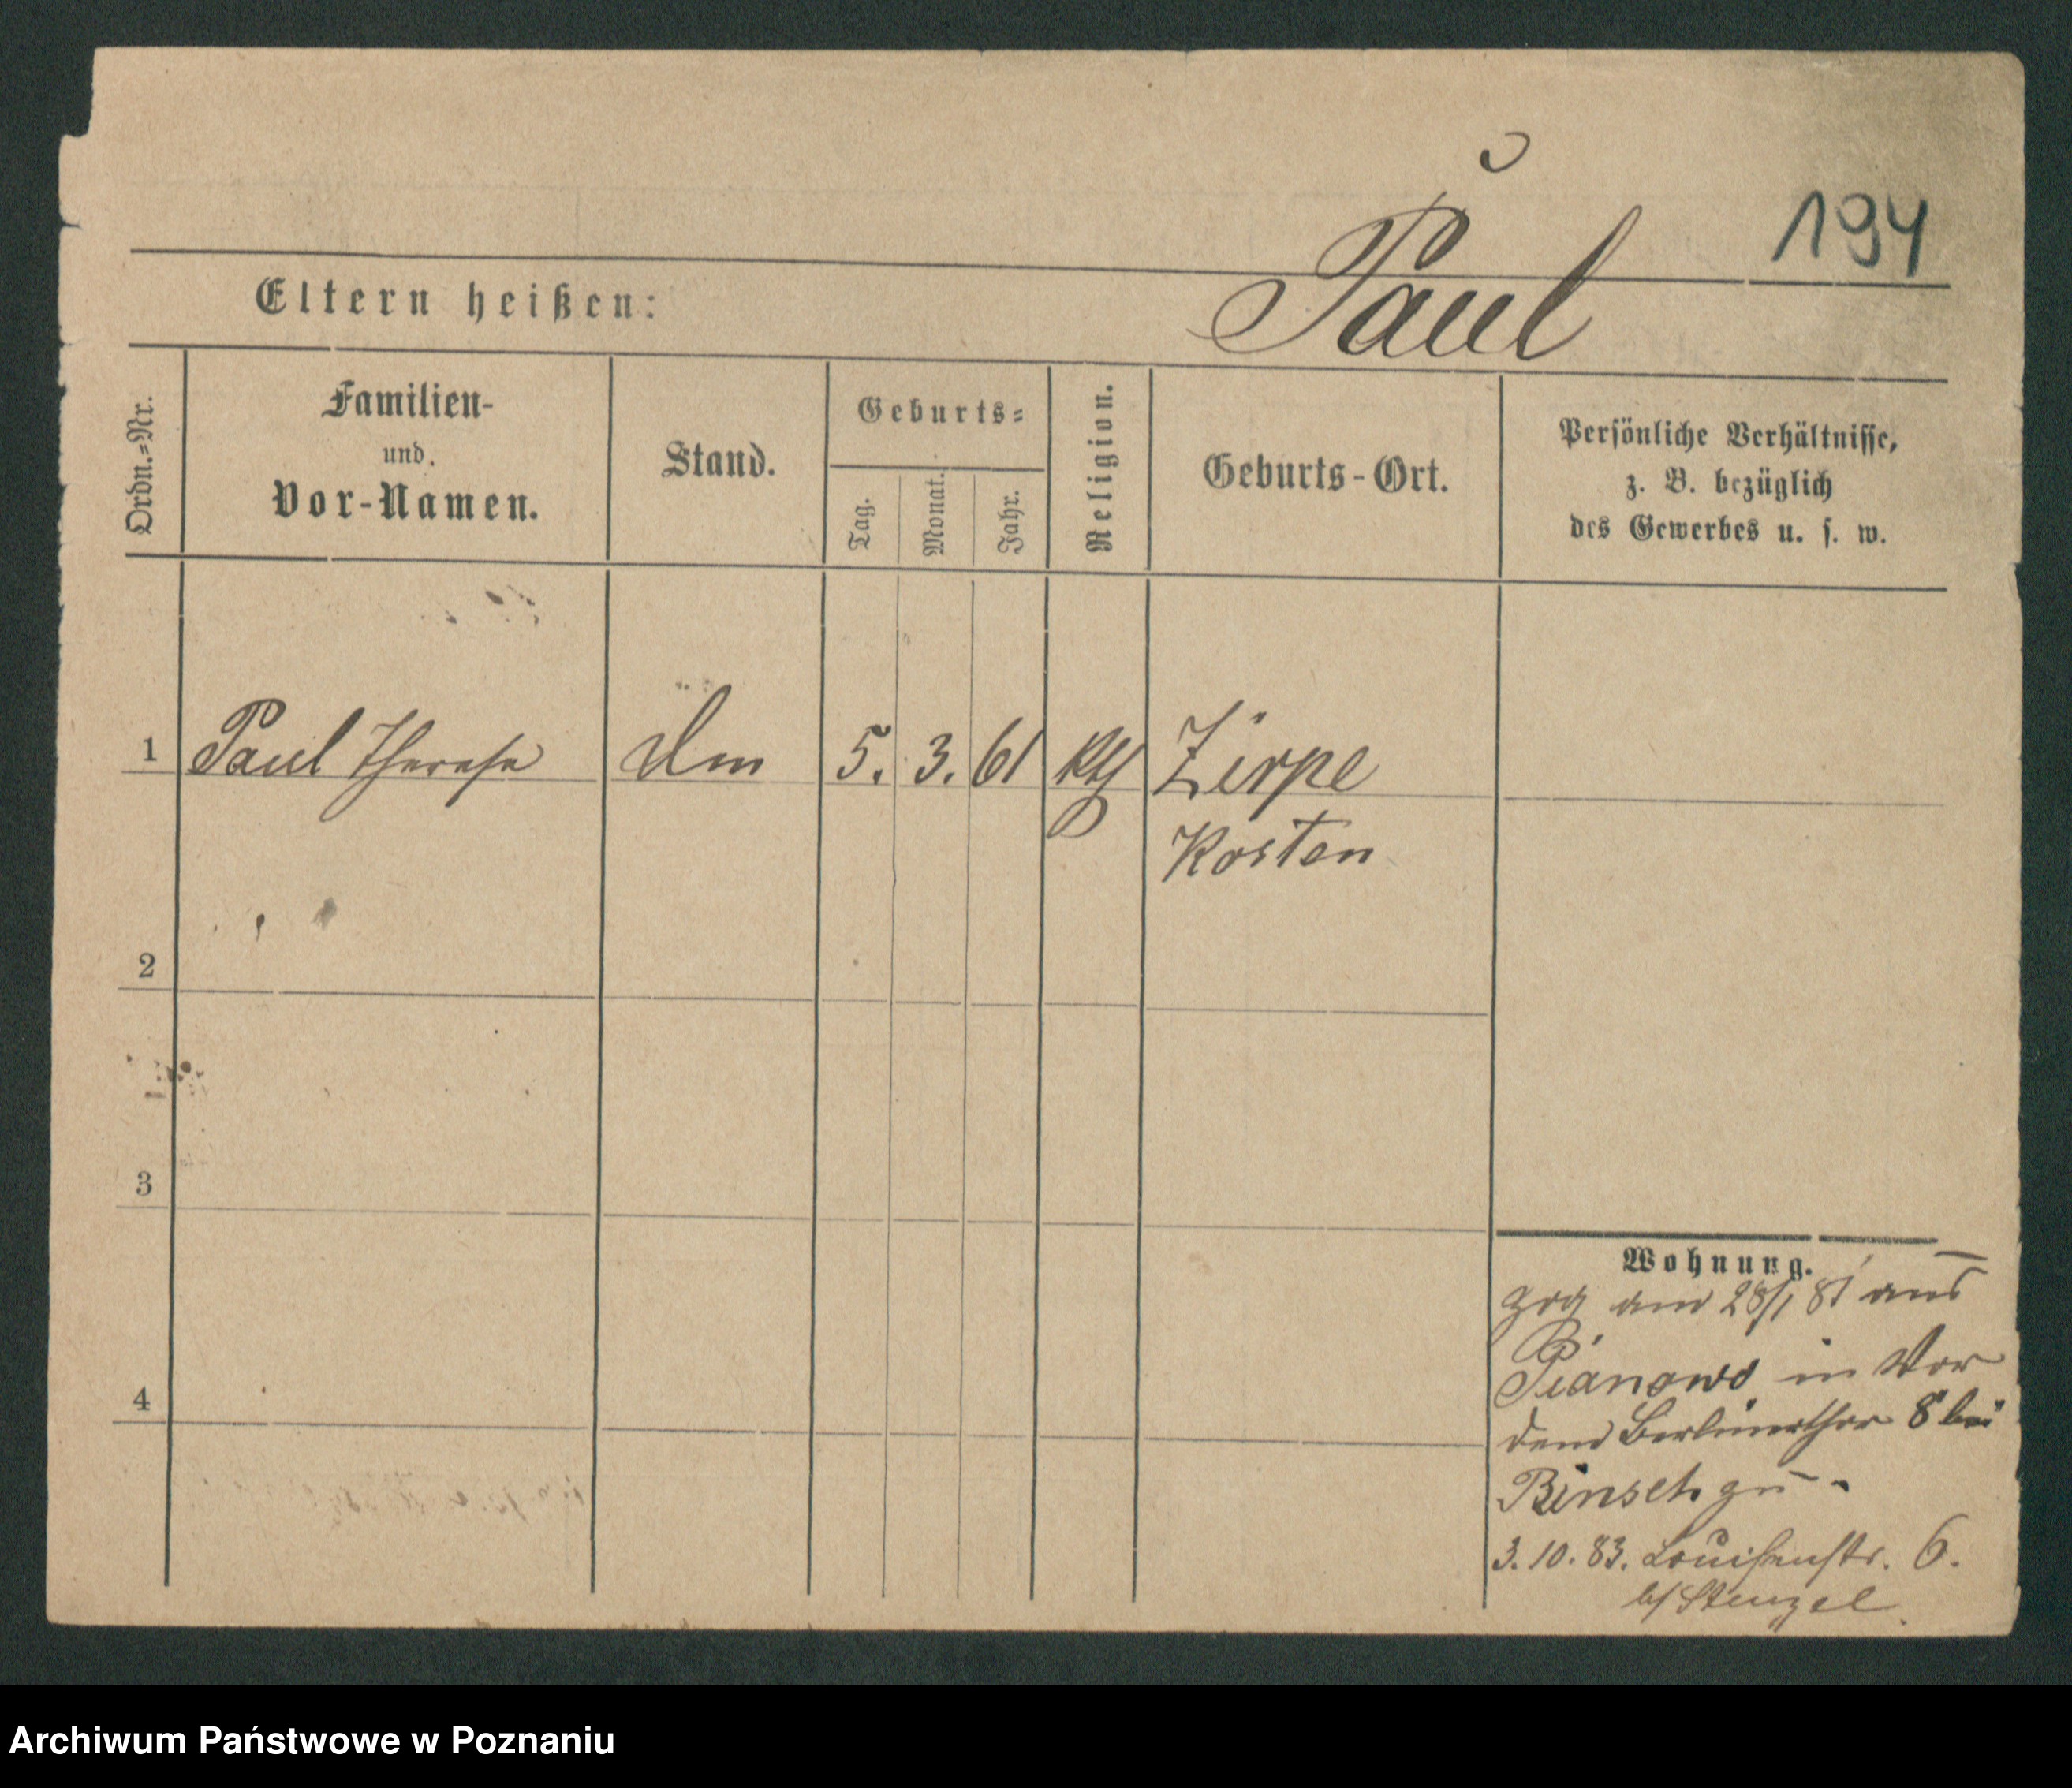 194
Paul
Eltern heißen:
Ordn.=Nr.
Familien-
und
Vor-Namen.
Stand.
Geburts=
Tag.
Monat.
Jahr.
Religion.
Geburts-Ort.
Persönliche Verhältnisse,
z. B. bezüglich
des Gewerbes u. s. w.
1 Paul Therese Dm 5. 3. 61 kth Zirpe
Kosten
2
3
4
Wohnung.
zog am 28/1 81 aus
Pianowo in Vor
dem Berlinerthor 8 bei
Binsch zu.
3.10.83. Louisenstr. 6.
b/ Stenzel.
Archiwum Państwowe w Poznaniu